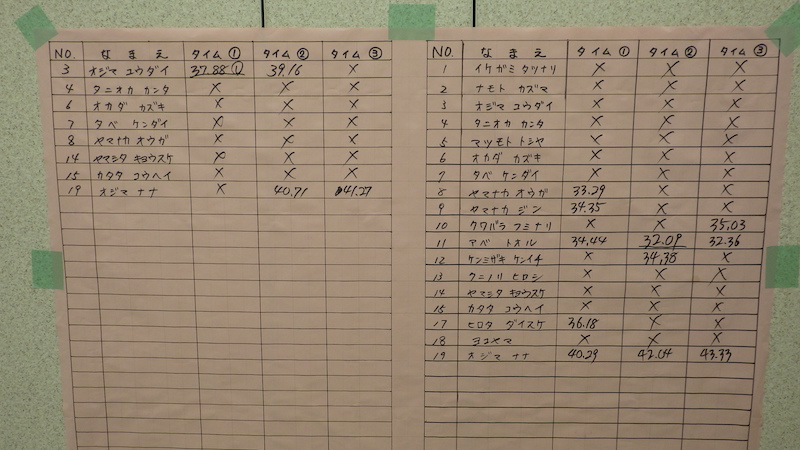 NO. なまえ タイム① タイム② タイム③
3 オジマ コウダイ 37.88① 39.16 ×
4 タニオカ カンタ × × ×
6 オカダ カズキ × × ×
7 タベ ケンダイ × × ×
8 ヤマナカ オウガ × × ×
14 ヤマシタ キョウスケ × × ×
15 カタタ コウヘイ × × ×
19 オジマ ナナ × 40.71 41.27
NO. なまえ タイム① タイム② タイム③
1 イケガミ タツナリ × × ×
2 ナモト カズマ × × ×
3 オジマ コウダイ × × ×
4 タニオカ カンタ × × ×
5 マツモト トシヤ × × ×
6 オカダ カズキ × × ×
7 タベ ケンダイ × × ×
8 ヤマナカ オウガ 33.29 × ×
9 ヤマナカ ジン 34.35 × ×
10 クワバラ フミナリ × × 35.03
11 アベ トオル 34.44 32.09 32.36
12 ケンミザキ ケンイチ × 34.38 ×
13 クニノリ ヒロシ × × ×
14 ヤマシタ キョウスケ × × ×
15 カタタ コウヘイ × × ×
17 ヒロタ ダイスケ 36.18 × ×
18 ヨコヤマ × × ×
19 オジマ ナナ 40.29 42.04 43.33